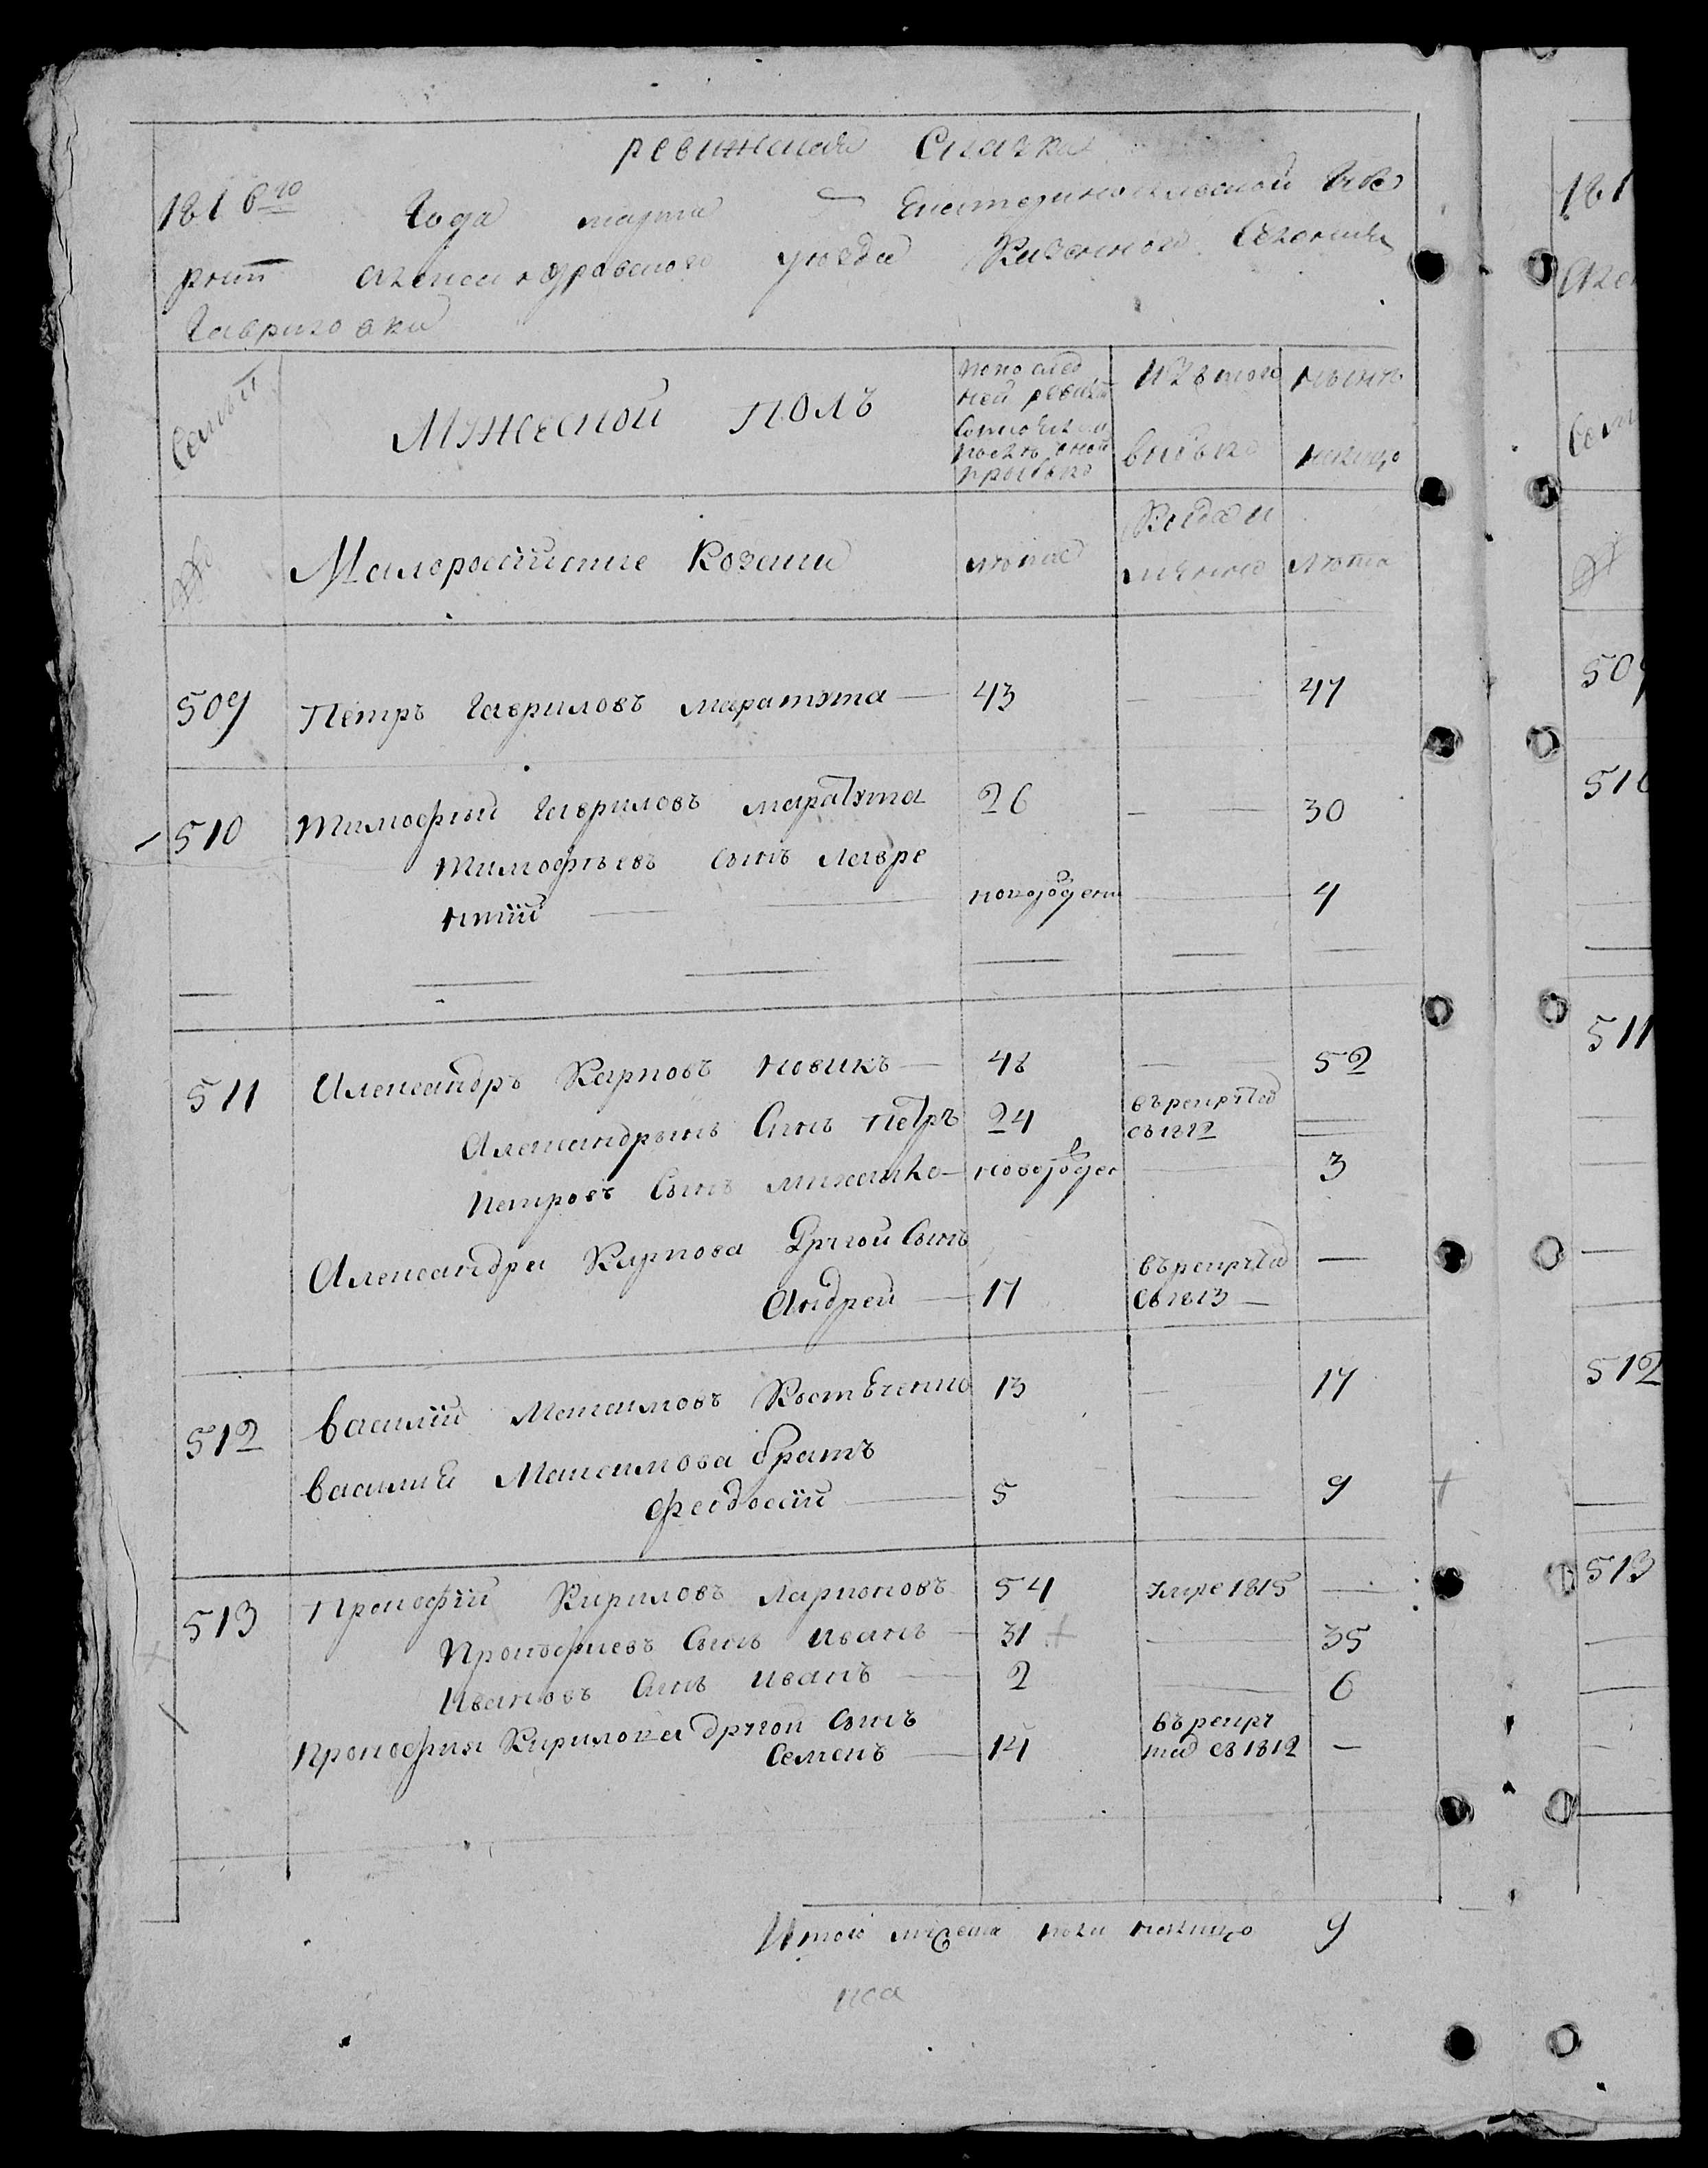 ревижская Сказка
1816го Года марта Екатеринославской Губе
рнии Александровского уезда Казенного Селения
Гавриловки
Семьи
Мужеской полъ
по послед
ней ревизии
состояло и
после оной
прибыло
изъ того
выбыло
ныне
налицо
№
Малороссийские Козаки
лета
Когда и
лета
509 Петръ Гавриловъ маратута — 43 — 47
510 Тимофей Гавриловъ маратута 26 — 30
Тимофеевъ сынъ Лавре
нтий — новорожден — 4
511 Александръ Карповъ новикъ — 48 — 52
Александровъ Сынъ петръ 24 въ рекруты
съ 1812
Петровъ Сынъ михайло — новорожден — 3
Александра Карпова Другой Сынъ
Андрей — 17 въ рекруты съ 1813 —
512 Василий Максимовъ 13 — 17
Василия Максимова братъ
Феодосий — 5 — 9
513 Прокофий Кириловъ Ларионовъ 54 умре 1815 —
Прокофиевъ Сынъ иванъ — 31 — 35
Ивановъ Сынъ иванъ — 2 — 6
Прокофия Кирилова другой Сынъ
Семенъ — 14 въ рекру
ты съ 1812 —
Итого мужеска пола налицо 9
181
509
510
511
512
513